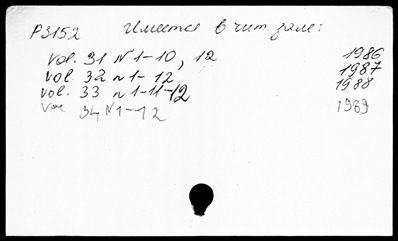 P3152 Имеется в чит. зале:
vol. 31 N 1-10, 12 1986
vol. 32 n 1-12 1987
vol. 33 n 1-11-12 1988
vol 34 N 1-12 1989